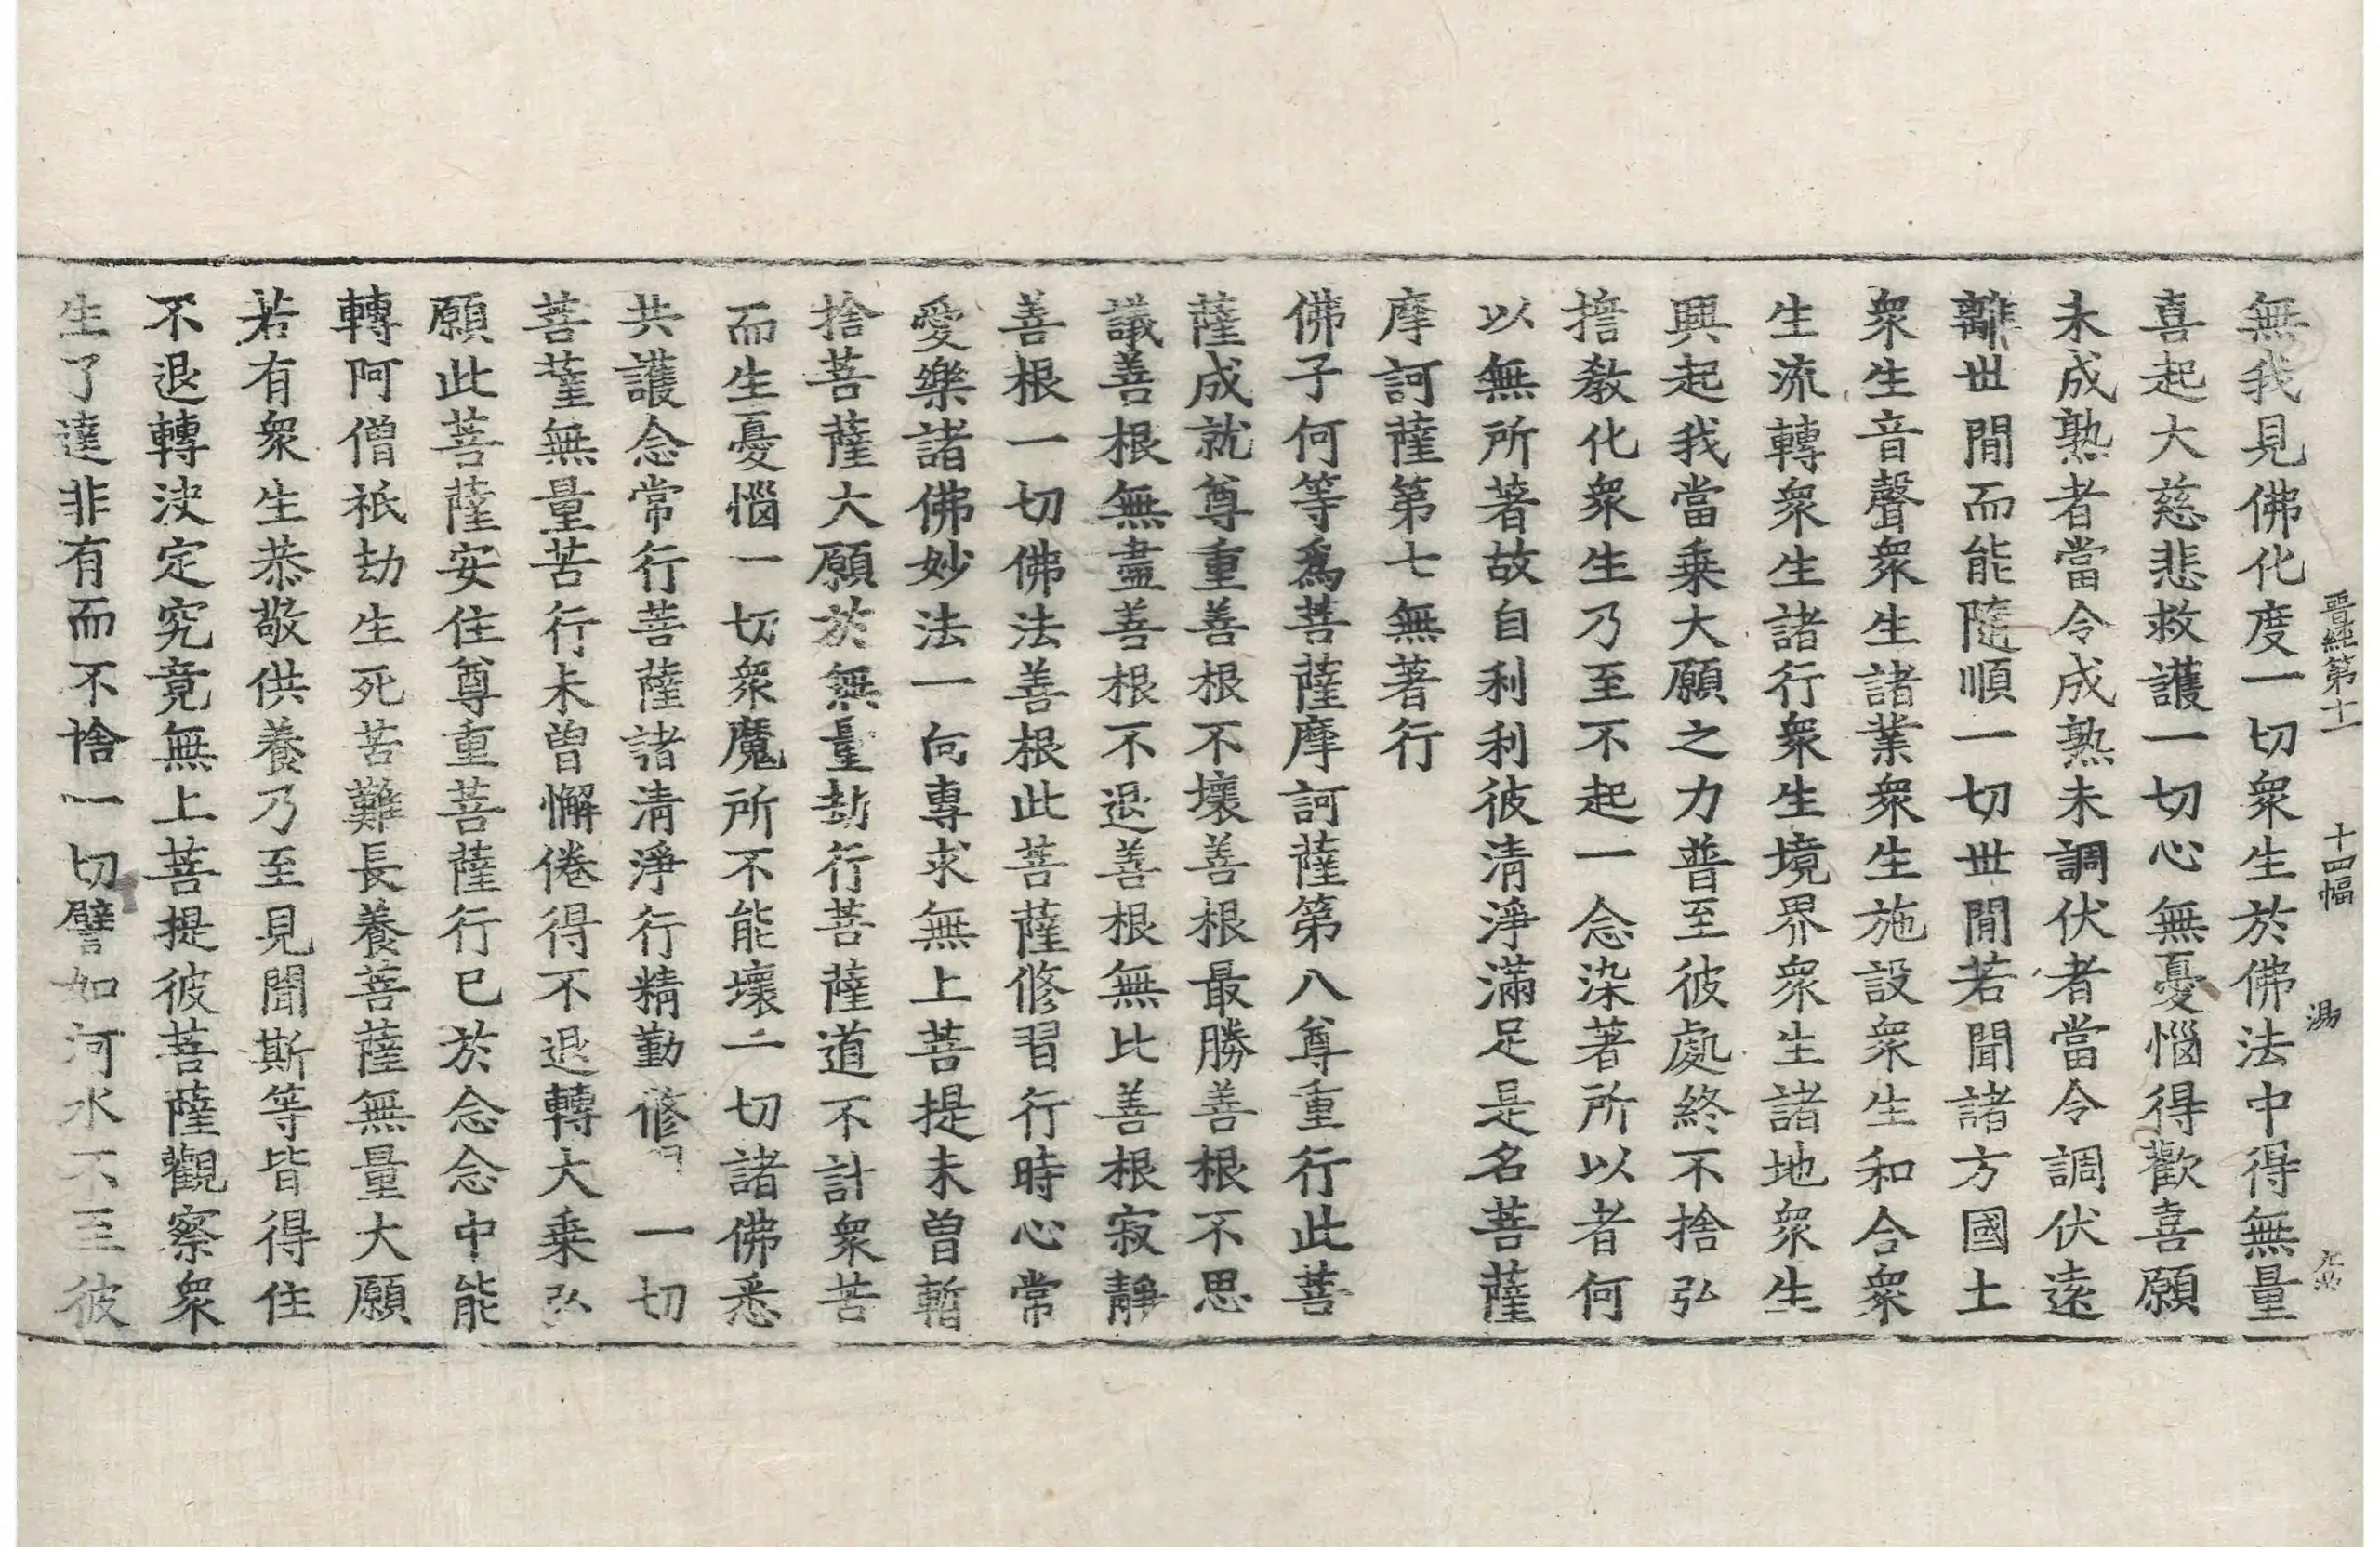 晋經第十一 十四幅 湯
無我見佛化度一切衆生於佛法中得無量
喜起大慈悲救護一切心無憂惱得歡喜願
未成熟者當令成熟未調伏者當令調伏遠
離世間而能隨順一切世間若聞諸方國土
衆生音聲衆生諸業衆生施設衆生和合衆
生流轉衆生諸行衆生境界衆生諸地衆生
興起我當乗大願之力普至彼處終不捨弘
擔教化衆生乃至不起一念染著所以者何
以無所著故自利利彼清淨滿足是名菩薩
摩訶薩第七無著行
佛子何等爲菩薩摩訶薩第八尊重行此菩
薩成就尊重善根不壞善根最勝善根不思
議善根無盡善根不退善根無比善根寂靜
善根一切佛法善根此菩薩修習行時心常
愛樂諸佛妙法一向專求無上菩提未曽暫
捨菩薩大願於無量劫行菩薩道不計衆苦
而生憂惱一切衆魔所不能壞一切諸佛悉
共護念常行菩薩諸清淨行精勤修 一切
菩薩無量苦行未曽懈倦得不退轉大乗弘
願此菩薩安住尊重菩薩行已於念念中能
轉阿僧祇劫生死苦難長養菩薩無量大願
若有衆生恭敬供養乃至見聞斯等皆得住
不退轉決定究竟無上菩提彼菩薩觀察衆
生了達非有而不捨一切譬如河水不至彼